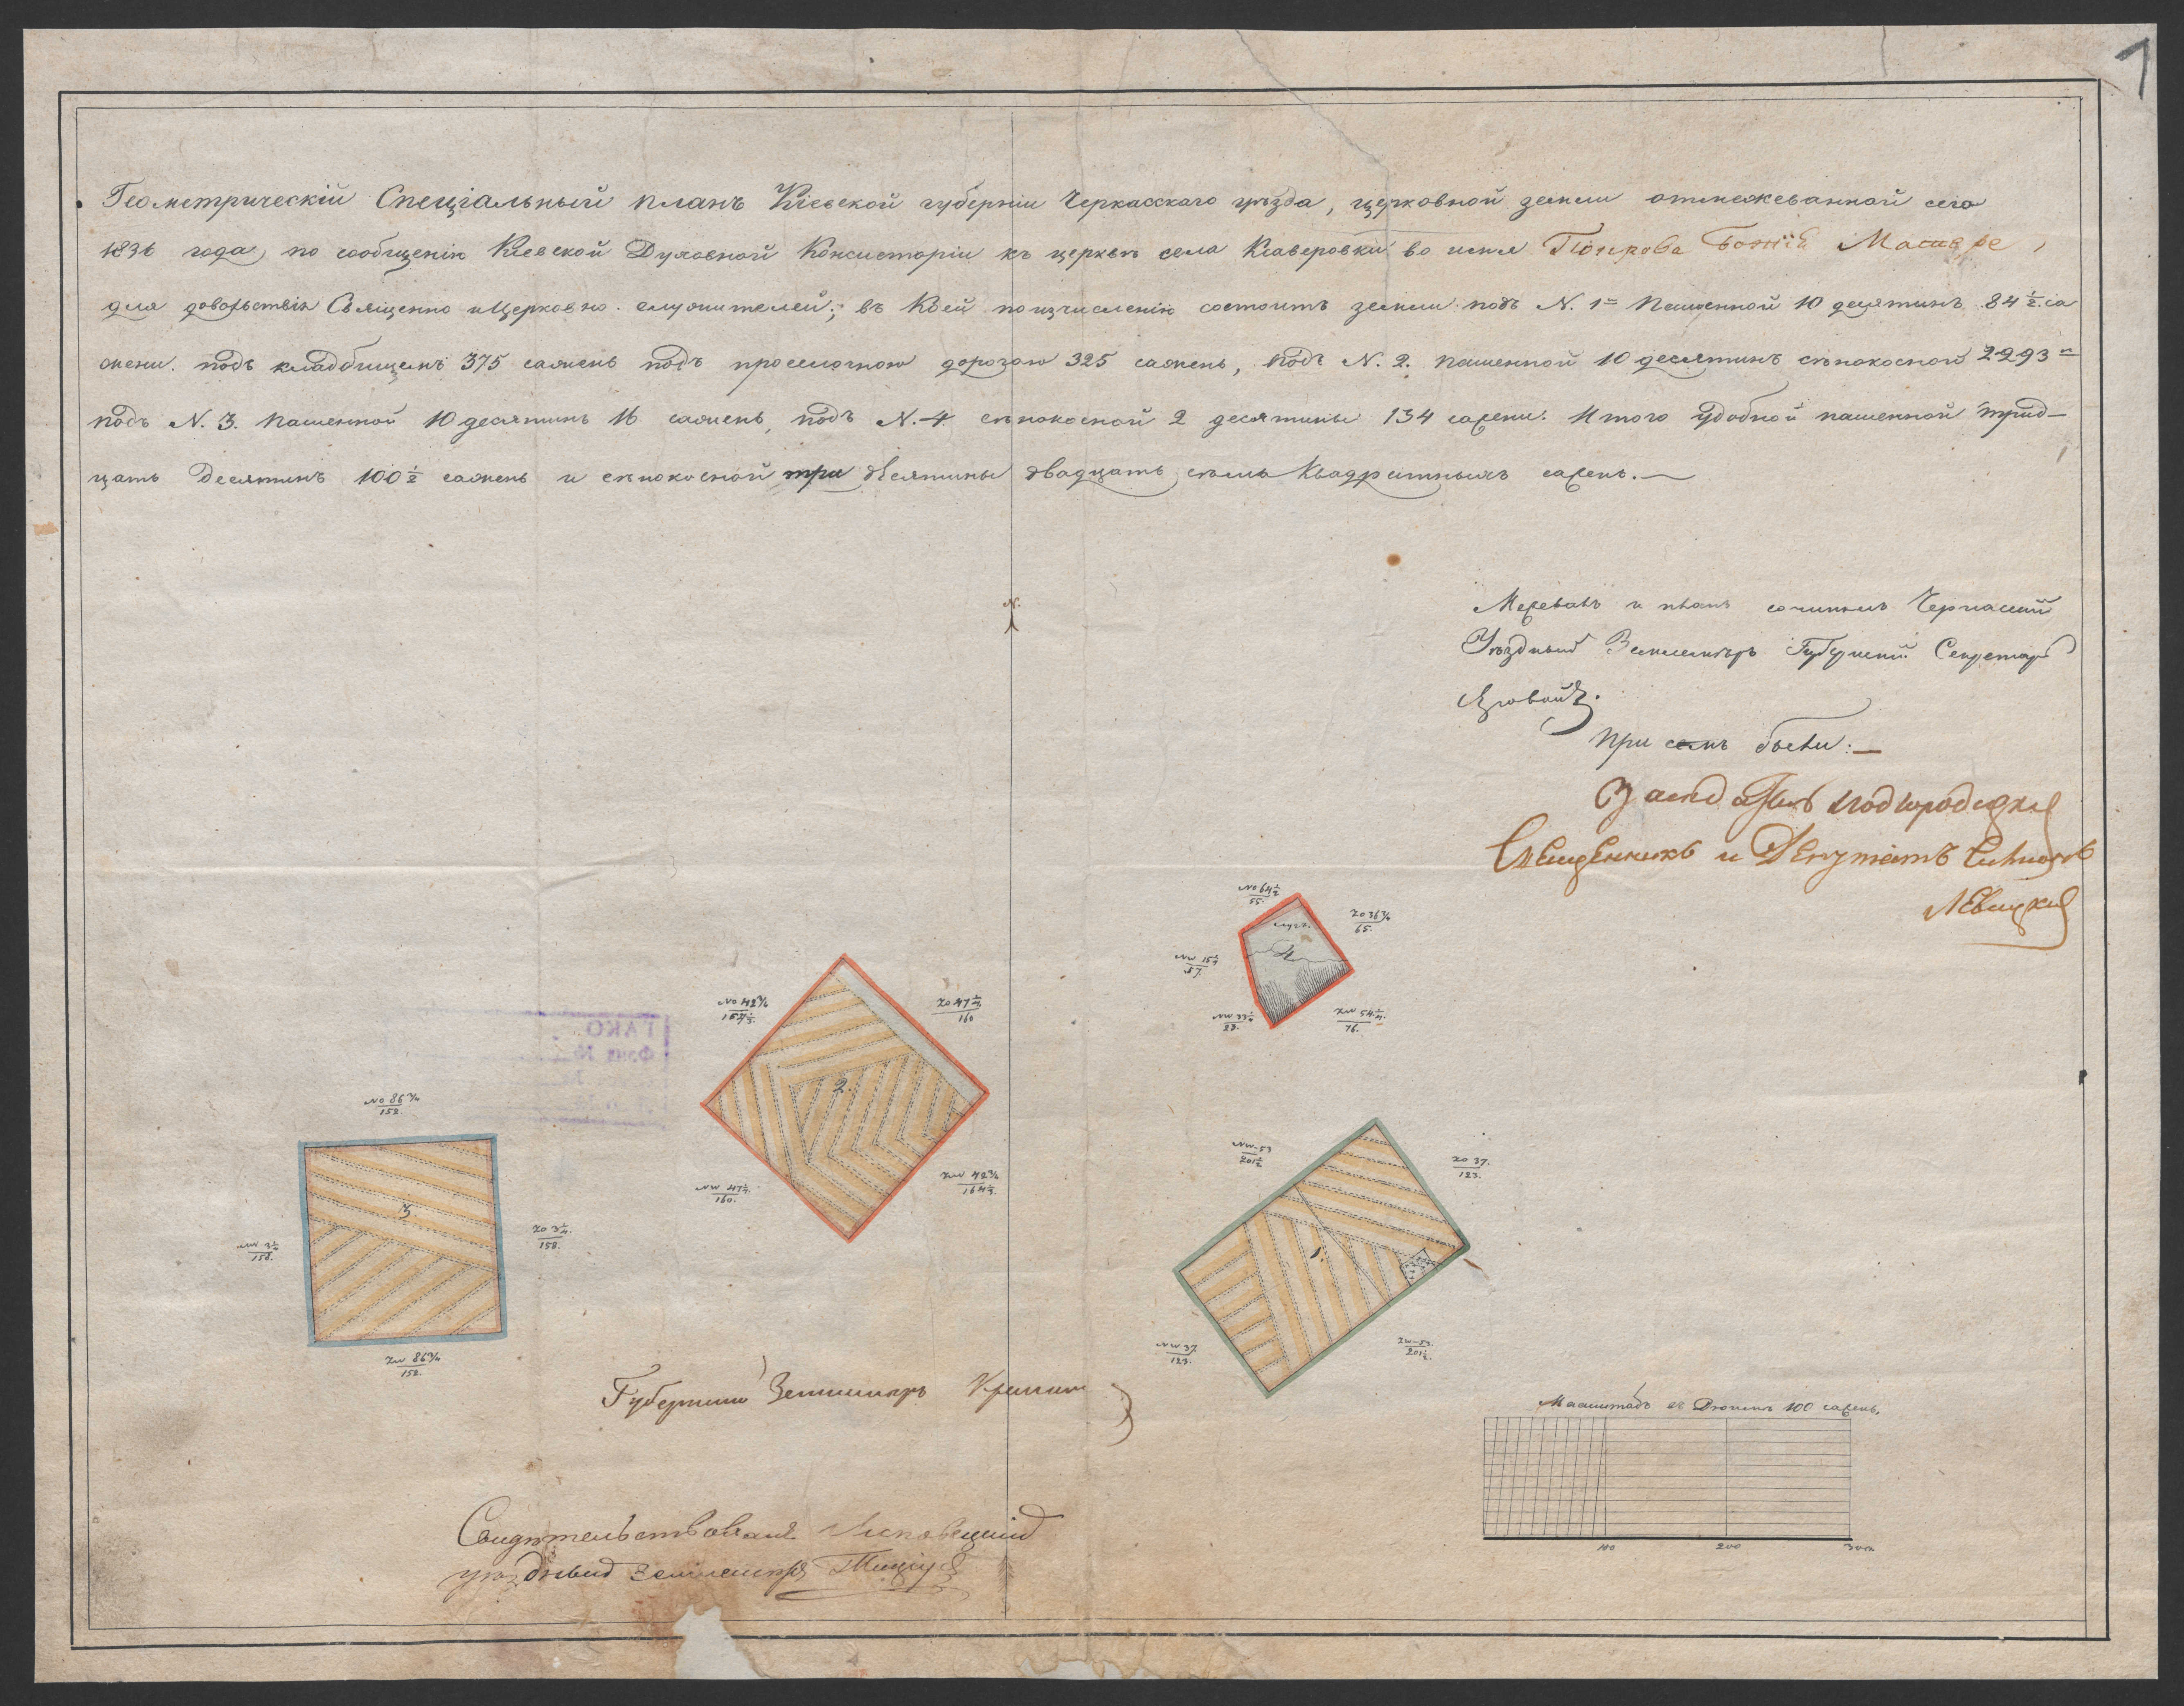 1
Геометрическій Спеціальный планъ Кіевской губерніи Черкасскаго уѣзда, церковной земли отмежеванной сего
1836 года, по сообщенію Кіевской Духовной Консисторіи къ церквѣ села во имя Покрова Божій Матере,
для довольствія Священно и Церковно-служителей; въ коей по изчисленію состоитъ земли подъ N. 1= пашенной 10 десятинъ 84 ½. са
жени. подъ кладбищемъ 375 сажень подъ проселочною дорогою 325 сажень, подъ N. 2. пашенной 10 десятинъ сѣнокосной 2293
подъ N. 3. пашенной 10 десятинъ 16 сажень, подъ N. 4 сѣнокосной 2 десятины 134 сажени. Итого удобной пашенной трид-
цать десятинъ 100 ½ сажень и сѣнокосной три десятины двадцать семь квадратныхъ сажень.
N.
Межевалъ и планъ сочинялъ Черкасский
Уѣздный Землемѣръ Губернский Секретарь
При семъ были:
Подгородецкий
Священникъ и Депутатъ
Левицкий
NO 64½
55.
ZO 36¾
65.
лугъ.
4
NW 15¼
57.
NW 33¼
23.
ZW 54¼
76.
NO 42¾
164½.
ZO 47¼
160
2.
NW 47¼
160.
ZW 42¾
164½.
ГАКО
Фонд №
NO 86¾
152.
3.
NW 3¼
158.
ZO 3¼
158.
ZW 86¾
152.
NW-53
201½
ZO 37.
123.
1.
NW 37
123.
ZW-53.
201½.
Губернский Землемѣръ
Свидѣтельствовалъ Липовецкій
уѣздный землемѣръ
Маштабъ въ Дюймѣ 100 сажень.
100 200 300